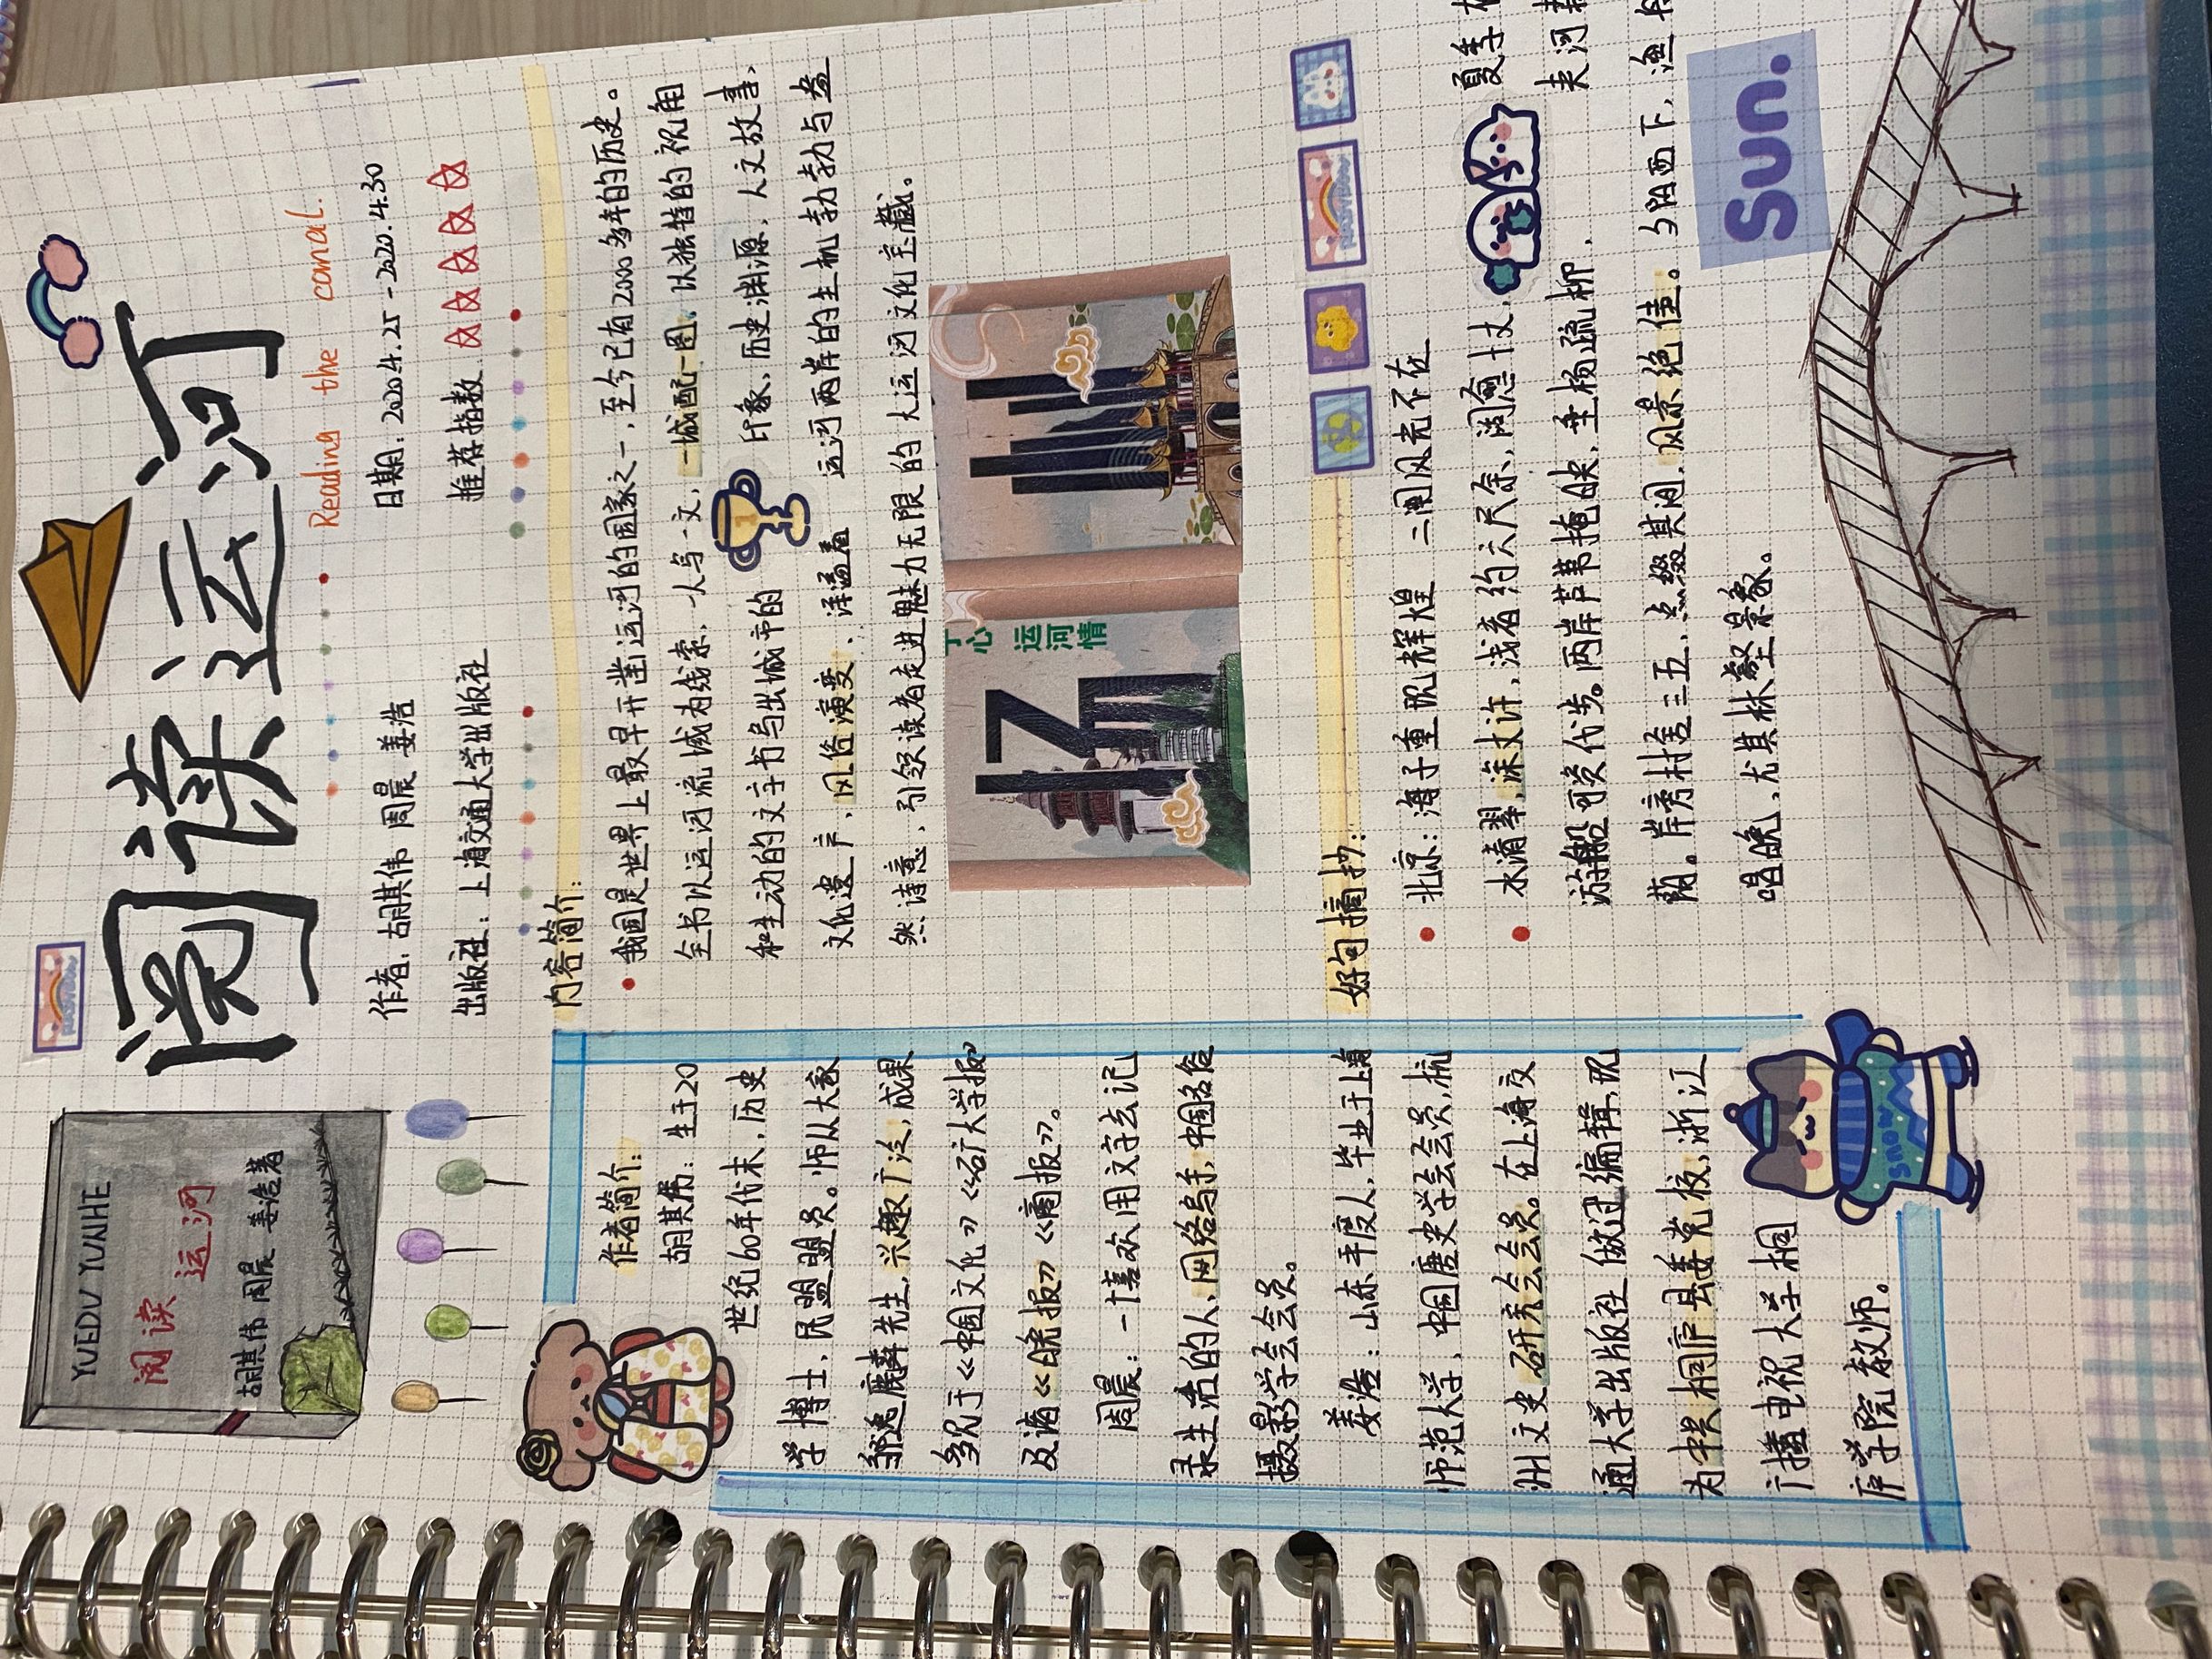 阅读运河
Reading the canal.
YUEDU YUNHE
阅读
运河
胡其伟 周晨 姜浩著
作者: 胡其伟 周晨 姜浩
日期: 2020.4.25-2020.4.30
出版社: 上海交通大学出版社
推荐指数
内容简介:
我国是世界上最早开凿运河的国家之一, 至今已有2000多年的历史。
全书以运河流域为线索, 一人写一文, 一城配一图, 以独特的视角
和生动的文字书写出城市的 印象, 历史渊源, 人文故事,
文化遗产, 风俗演变, 洋溢着 运河两岸的生机勃勃与盎
然诗意, 引领读者走进魅力无限的大运河文化宝藏。
心
运
河
情
作者简介:
胡其伟: 生于20
世纪60年代末, 历史
学博士, 民盟盟员。师从大家
邹逸麟先生, 兴趣广泛, 成果
多见于《中国文化》《矿大学报》
及诸《晚报》《商报》。
周晨: 一个喜欢用文字去记
录生活的人, 网络写手, 中国名俗
摄影学会会员。
姜浩: 山东平度人, 毕业于上海
师范大学, 中国唐史学会会员, 杭
州文史研究会会员。在上海交
通大学出版社做过编辑, 现
为中共桐庐县委党校, 浙江
广播电视大学桐
庐学院教师。
好句摘抄:
北京: 海子重现辉煌 二闸风光不在
水清翠, 深丈许, 浅者约六尺余, 阔愈十丈, 夏季
游船可以代步。两岸芦苇掩映, 垂杨疏柳, 夹河
荫。岸旁村舍三五, 点缀其间, 风景绝佳。夕阳西下, 渔
唱晚, 尤其林壑景象。
Sun.
SNOW